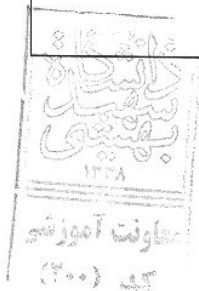 دانشگاه
شهید
بهشتی
۱۳۳۸
معاونت آموزشی
کد (۳۰۰)